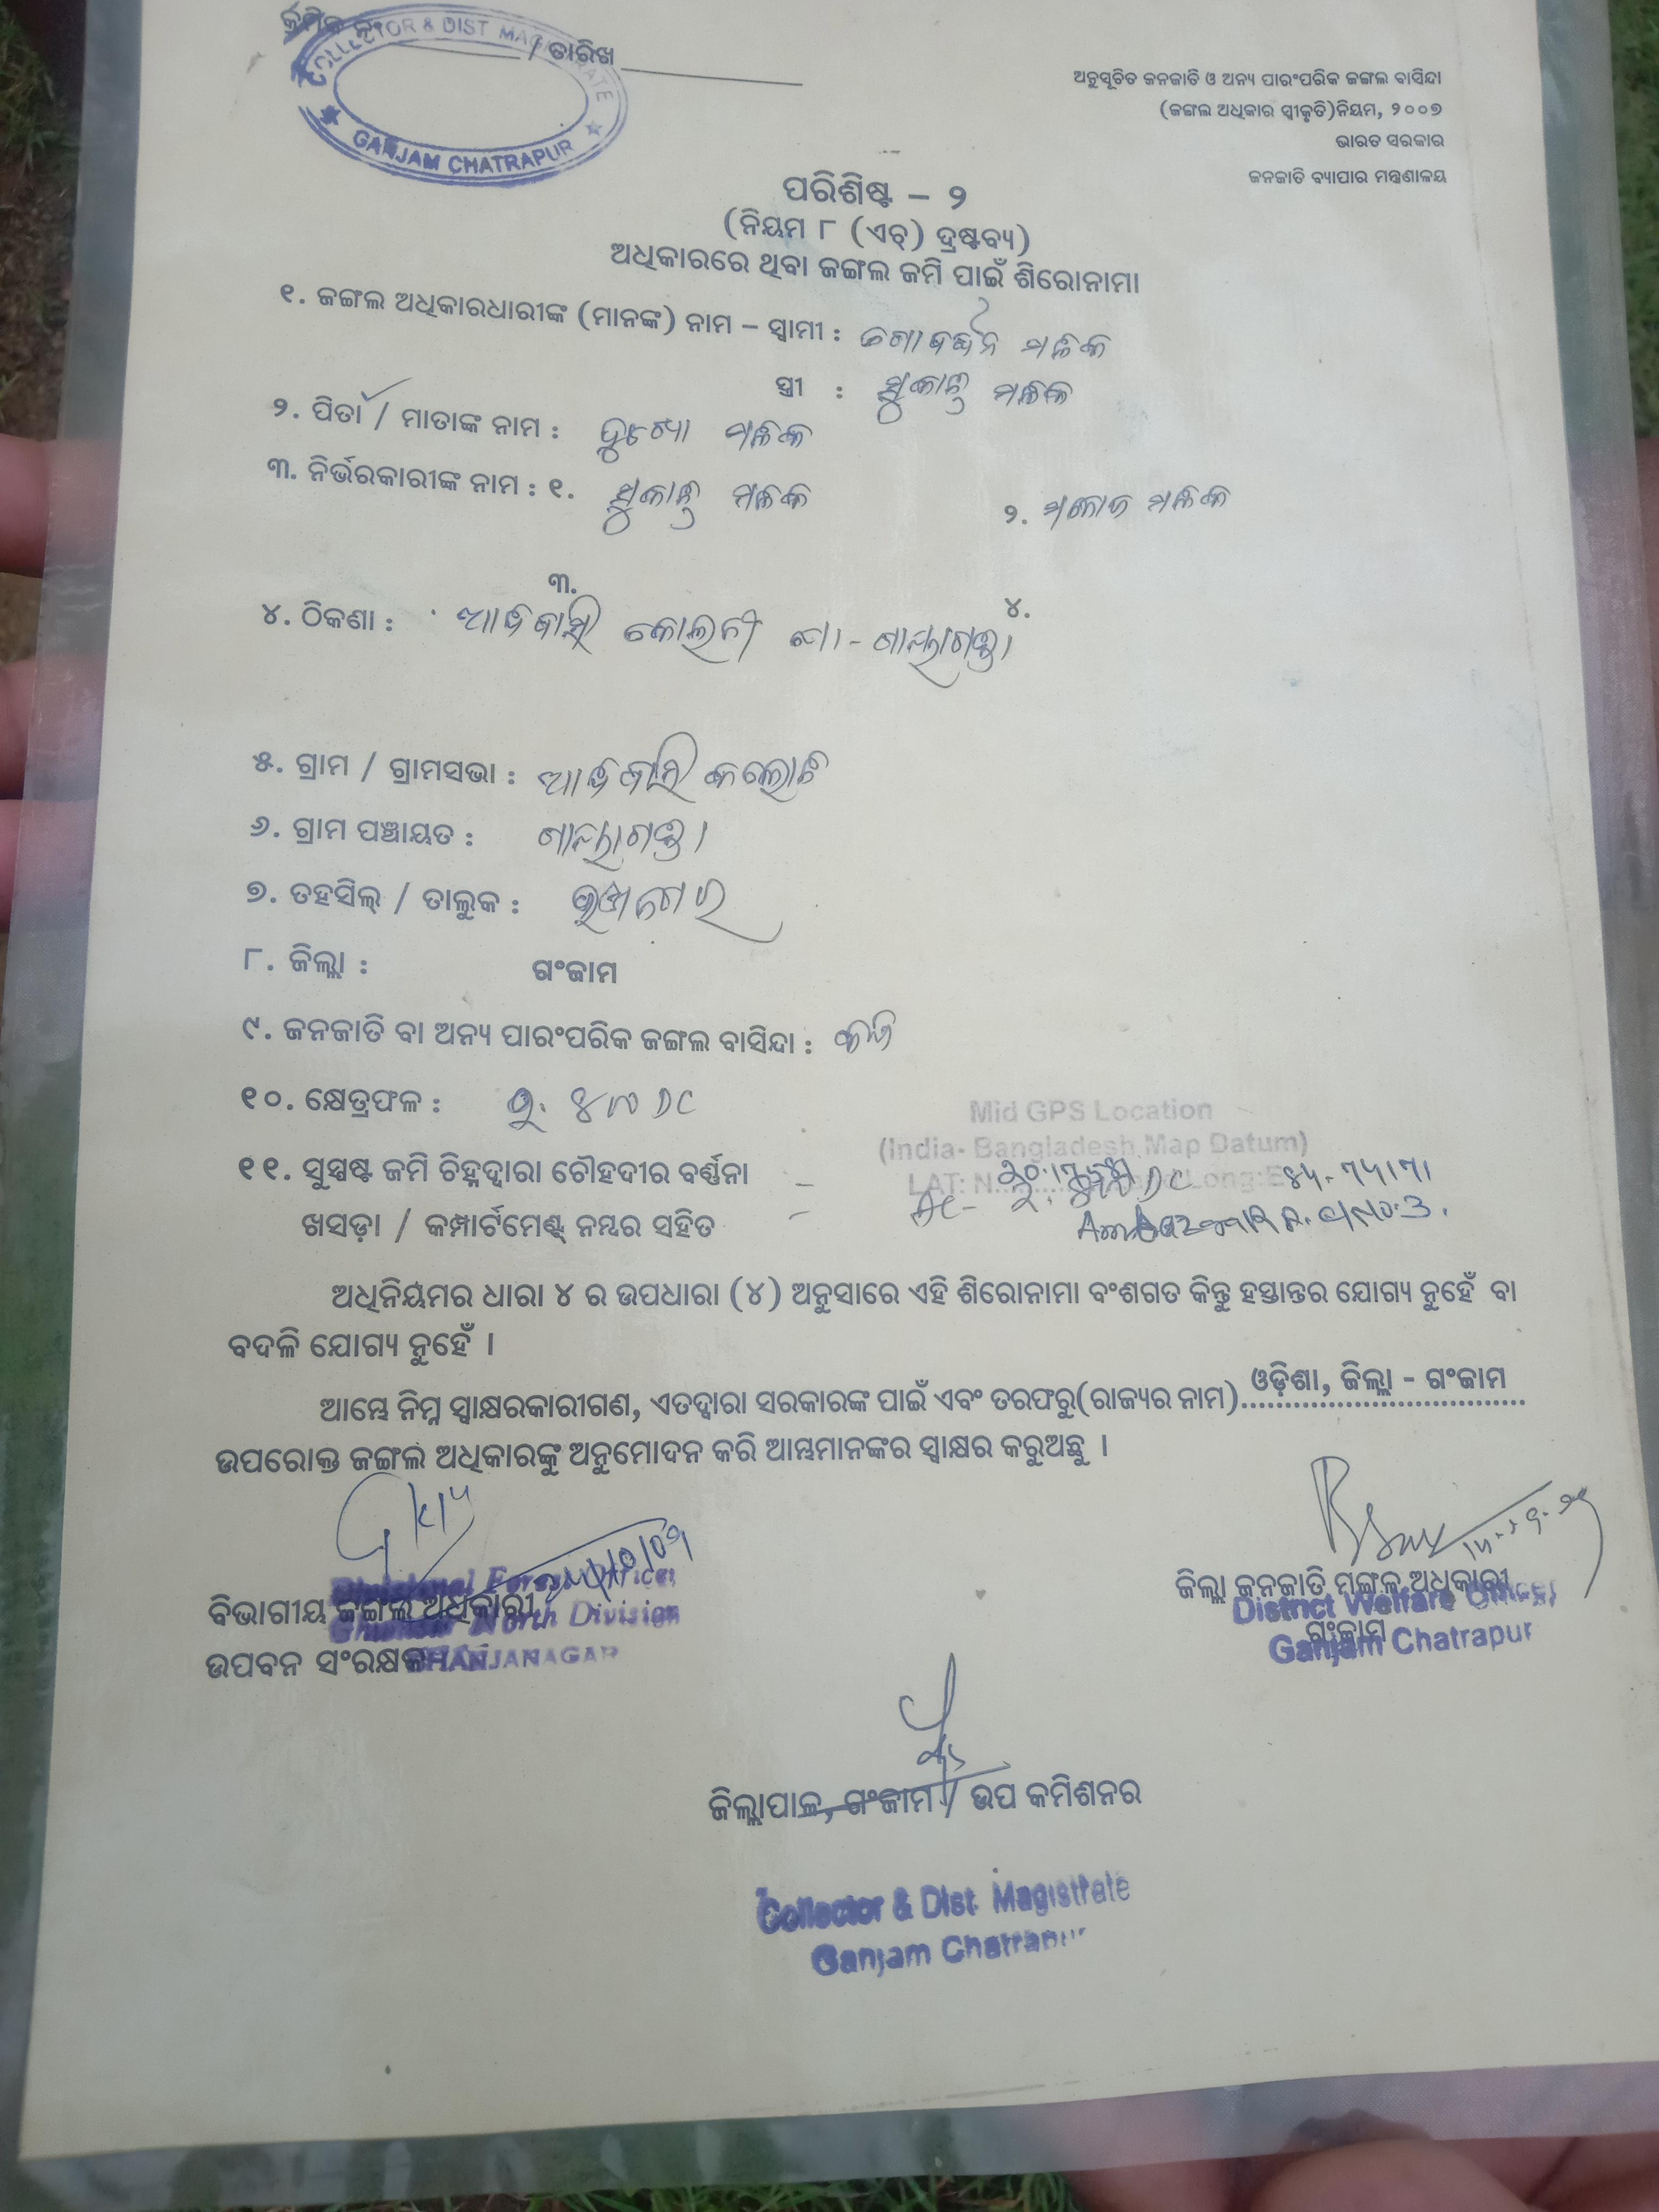 କ୍ରମିକ ନଂ / ତାରିଖ
COLLECTOR & DIST MAGISTRATE
GANJAM CHATRAPUR
ଅନୁସୂଚିତ ଜନଜାତି ଓ ଅନ୍ୟ ପାରଂପରିକ ଜଙ୍ଗଲ ବାସିନ୍ଦା
(ଜଙ୍ଗଲ ଅଧିକାର ସ୍ୱୀକୃତି)ନିୟମ, ୨୦୦୭
ଭାରତ ସରକାର
ଜନଜାତି ବ୍ୟାପାର ମନ୍ତ୍ରଣାଳୟ
ପରିଶିଷ୍ଟ – ୨
(ନିୟମ ୮ (ଏଚ୍) ଦ୍ରଷ୍ଟବ୍ୟ)
ଅଧିକାରରେ ଥିବା ଜଙ୍ଗଲ ଜମି ପାଇଁ ଶିରୋନାମା
୧. ଜଙ୍ଗଲ ଅଧିକାରଧାରୀଙ୍କ (ମାନଙ୍କ) ନାମ – ସ୍ୱାମୀ : ଗୋବର୍ଦ୍ଧନ ମଳିକ
ସ୍ତ୍ରୀ : ସୁକାନ୍ତି ମଳିକ
୨. ପିତା / ମାତାଙ୍କ ନାମ : ମଳିକ
୩. ନିର୍ଭରକାରୀଙ୍କ ନାମ : ୧. ସୁକାନ୍ତି ମଳିକ ୨. ମନୋଜ ମଳିକ
୩. ୪.
୪. ଠିକଣା : ଆଦିବାସୀ କୋଲନୀ
୫. ଗ୍ରାମ / ଗ୍ରାମସଭା : ଆଦିବାସି କଲୋନି
୬. ଗ୍ରାମ ପଞ୍ଚାୟତ :
୭. ତହସିଲ୍ / ତାଲୁକ :
୮. ଜିଲ୍ଲା : ଗଂଜାମ
୯. ଜନଜାତି ବା ଅନ୍ୟ ପାରଂପରିକ ଜଙ୍ଗଲ ବାସିନ୍ଦା :
୧୦. କ୍ଷେତ୍ରଫଳ :
Mid GPS Location
(India- Bangladesh Map Datum)
୧୧. ସୁସ୍ପଷ୍ଟ ଜମି ଚିହ୍ନଦ୍ୱାରା ଚୌହଦୀର ବର୍ଣ୍ଣନା LAT: N Long:E
ଖସଡ଼ା / କମ୍ପାର୍ଟମେଣ୍ଟ ନମ୍ବର ସହିତ
ଅଧିନିୟମର ଧାରା ୪ ର ଉପଧାରା (୪) ଅନୁସାରେ ଏହି ଶିରୋନାମା ବଂଶଗତ କିନ୍ତୁ ହସ୍ତାନ୍ତର ଯୋଗ୍ୟ ନୁହେଁ ବା
ବଦଳି ଯୋଗ୍ୟ ନୁହେଁ ।
ଆମ୍ଭେ ନିମ୍ନ ସ୍ୱାକ୍ଷରକାରୀଗଣ, ଏତଦ୍ୱାରା ସରକାରଙ୍କ ପାଇଁ ଏବଂ ତରଫରୁ(ରାଜ୍ୟର ନାମ) ଓଡ଼ିଶା, ଜିଲ୍ଲା - ଗଂଜାମ
ଉପରୋକ୍ତ ଜଙ୍ଗଲ ଅଧିକାରଙ୍କୁ ଅନୁମୋଦନ କରି ଆମ୍ଭମାନଙ୍କର ସ୍ୱାକ୍ଷର କରୁଅଛୁ ।
Divisional Forest Officer
ବିଭାଗୀୟ ଜଙ୍ଗଲ ଅଧିକାରୀ
North Division
ଉପବନ ସଂରକ୍ଷକ
BHANJANAGAR
ଜିଲ୍ଲା ଜନଜାତି ମଙ୍ଗଳ ଅଧିକାରୀ
District Welfare Officer
ଗଂଜାମ
Ganjam Chatrapur
ଜିଲ୍ଲାପାଳ, ଗଂଜାମ / ଉପ କମିଶନର
Collector & Dist. Magistrate
Ganjam Chatrapur